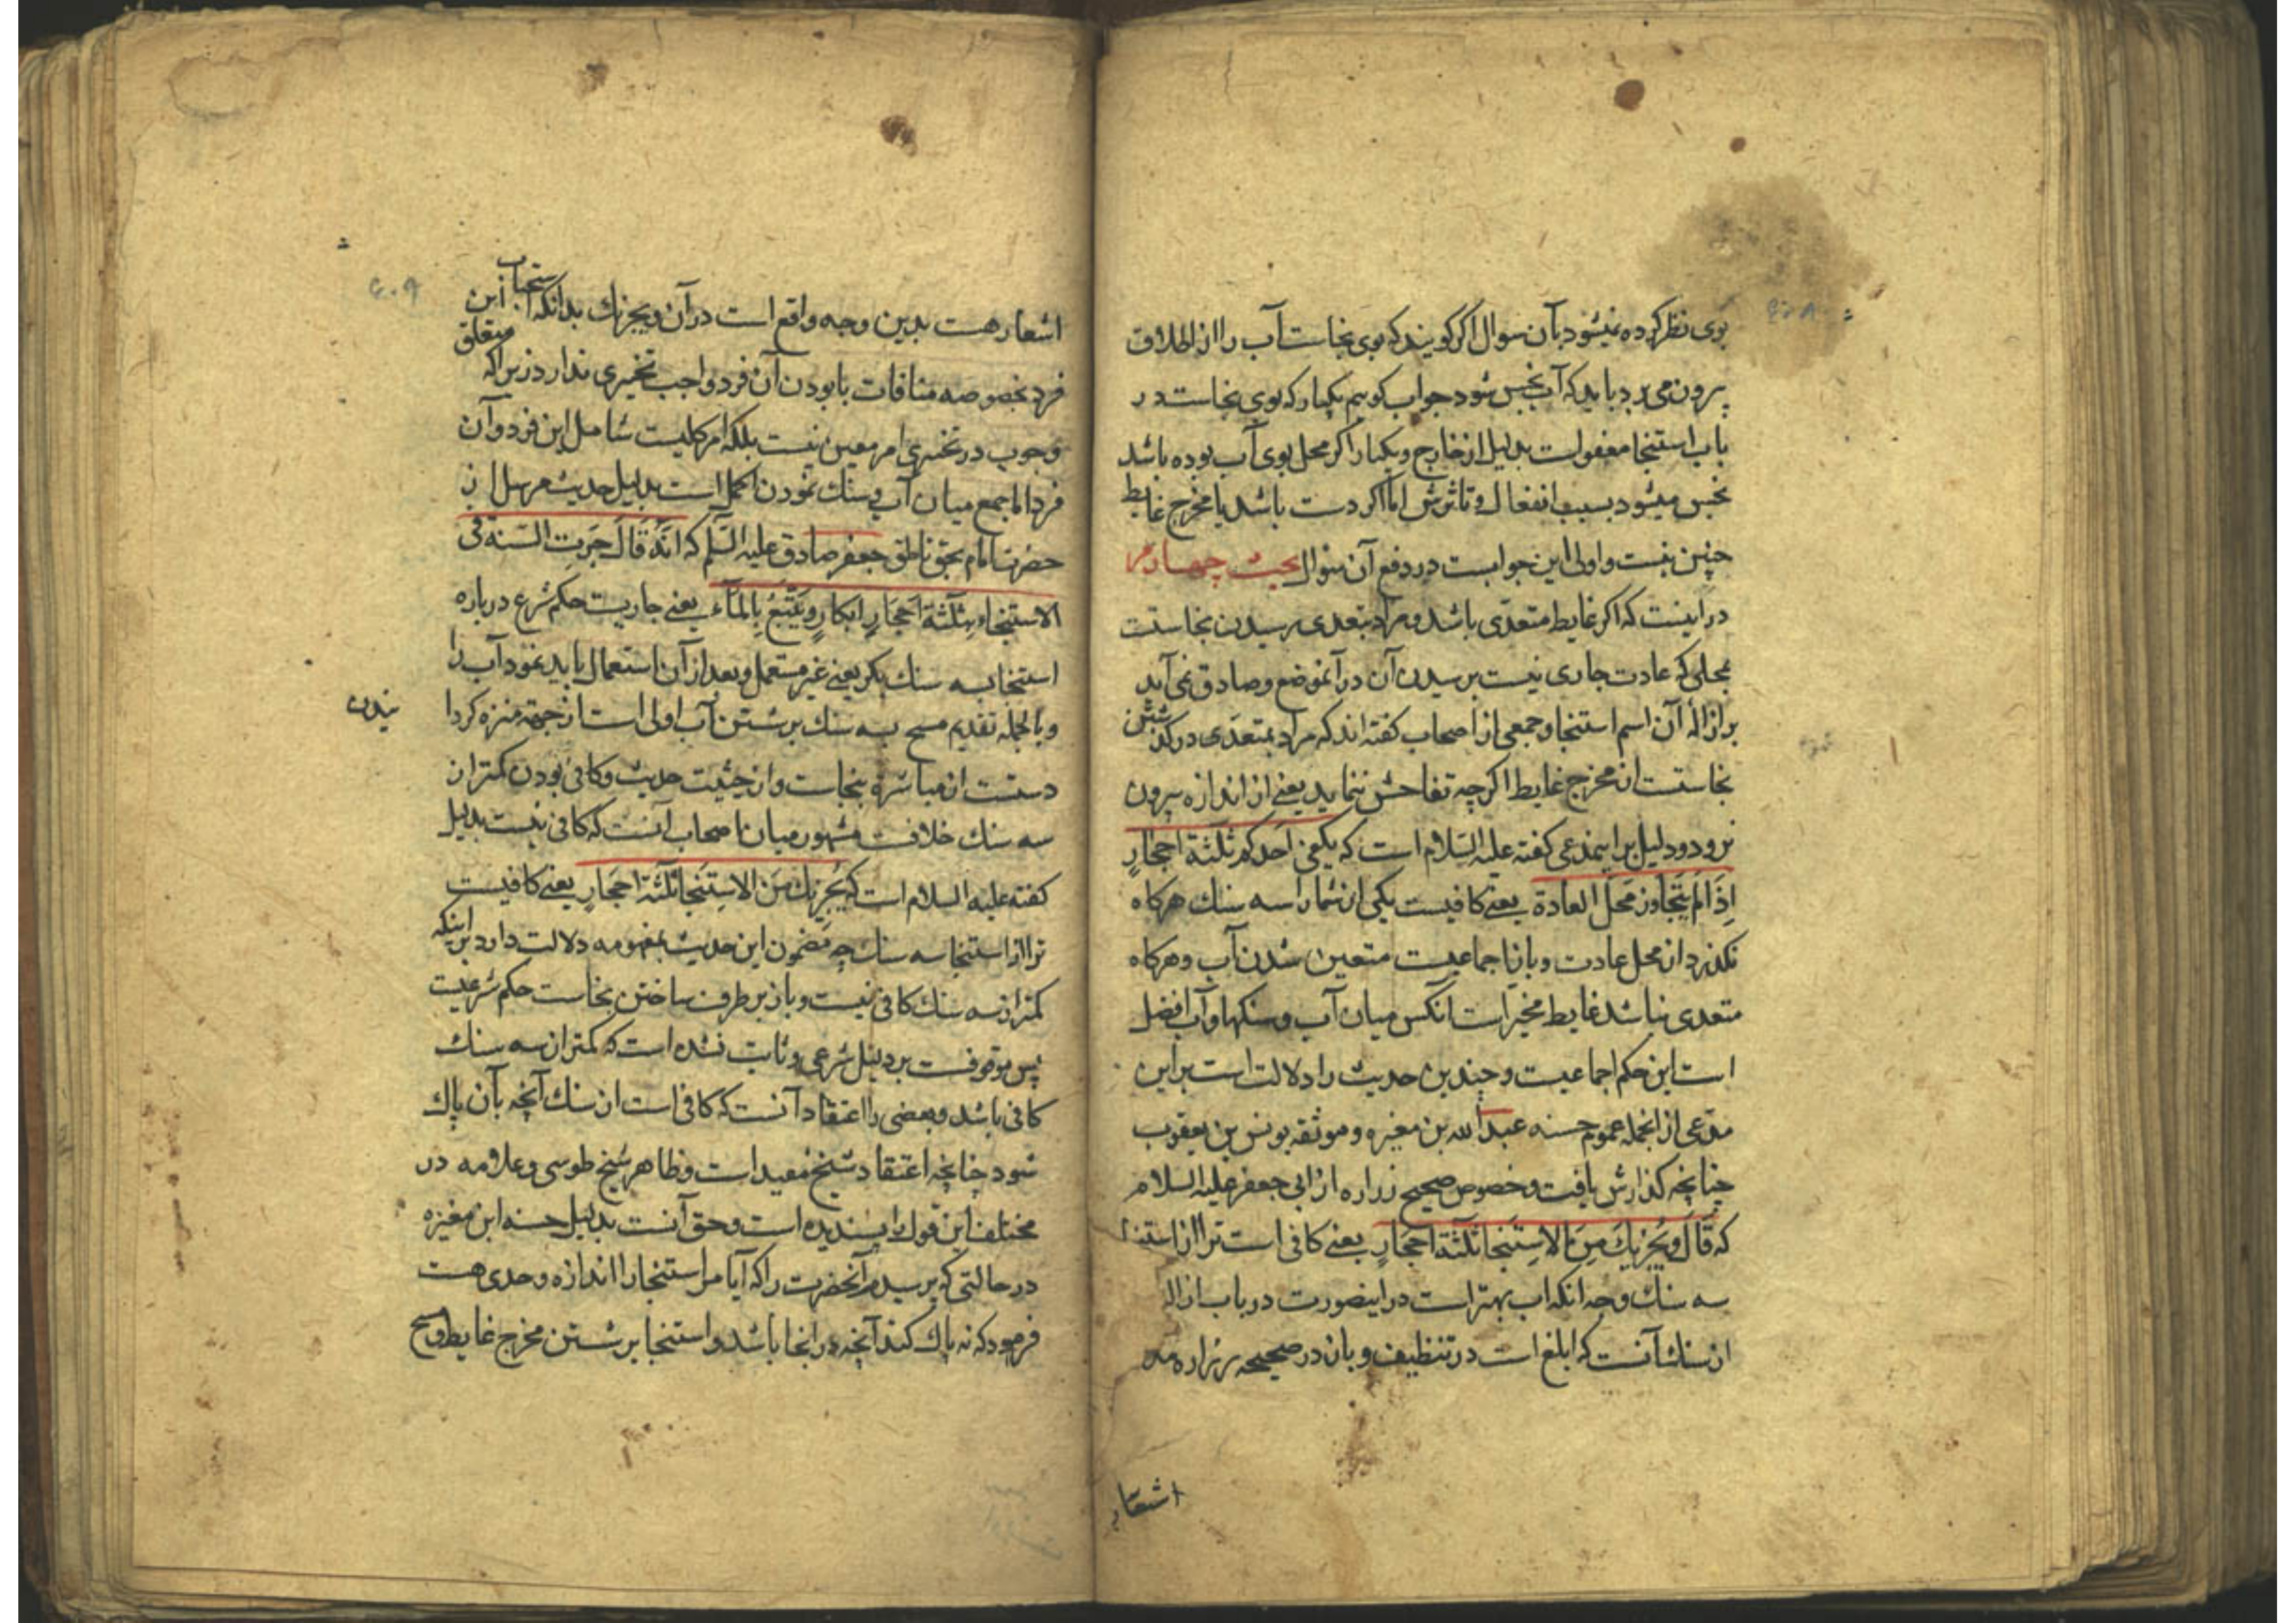 بوی نظر کرده نمیشود بآن سوال اکر کویند که بوی نجاست آب را از اطلاق
بیرون می برد باید که آب نجس شود جواب کوییم یکبار که بوی نجاست در
باب استنجا معفوست بدلیل از خارج و یکبار اکر محل بوی آب بوده باشد
نجس میشود بسبب انفعال و تاثرش اما اکر دست باشد یا مخرج غایط
چنین نیست و اولی این جوابست در دفع آن سوال بحث چهارم
در اینست که اکر غایط متعدی باشد و مراد بتعدی رسیدن نجاستست
بمحلی که عادت جاری نیست برسیدن آن در آنموضع و صادق نمی آید
بر ازالهٔ آن اسم استنجا و جمعی از اصحاب کفته اند که مراد بمتعدی در کذشتن
نجاستست از مخرج غایط اکر چه تفاحش ننماید یعنی از اندازه بیرون
نرود و دلیل بر اینمدعی کفته علیه السلام است که یکفی احدکم ثلثة احجارٍ
اِذَا لَم یَتَجَاوَز مَحَلَّ العادة یعنی کافیست یکی از شما را سه سنك هرکاه
نکذرد از محل عادت و باز اجماعیست متعین شدن آب و هرکاه
متعدی نباشد غایط مخیر است آنکس میان آب و سنکها و آب افضل
است این حکم اجماعیست و چندین حدیث را دلالت است بر این
مدعی از انجمله عموم حسنه عبد الله بن مغیره و موثقه یونس بن یعقوب
چنانچه کذارش یافت و خصوص صحیح زراره از ابی جعفر علیه السلام
که قَالَ وَیُجزیكَ مِنَ الاستِنجا ثلثة احجَارٍ یعنی کافی است ترا از استنجا
سه سنك و وجه انکه اب بهتر است در اینصورت در باب ازاله
از سنك آنست که ابلغ است در تنظیف و باز در صحیحه زراره مه
اشعار
اشعار هست بدین وجه واقع است در آن ویجزیك بدانکه استحباب این
فرد بخصوصه منافات با بودن آن فرد واجب تخییری ندارد زیراکه متعلق
وجوب در تخییری امر معین نیست بلکه امر کلیست شامل این فرد و آن
فرد اما جمع میان آب و سنك نمودن اکمل است بدلیل حدیث مرسل از
حضرت امام بحق ناطق جعفر صادق علیه السلم که انَّهُ قَالَ جَرَتِ السنة فی
الاستنجا بثلثة اَحجَارٍ ابکارٍ ویُتبَعُ بِالمَآءِ یعنی جاریست حکم شرع درباره
استنجا بسه سنك بکر یعنی غیر مستعمل و بعد از آن استعمال باید نمود آب را
و بالجمله تقدیم مسح بسه سنك بر شستن بآب اولی است از جهة منزه کردا
نیدن
دستست از مباشرة نجاست و از حیثیت حدیث و کافی بودن کمتر از
سه سنك خلافت مشهور میان اصحاب آنست که کافی نیست بدلیل
کفته علیه السلام است که یُجزیكَ مِنَ الاستِنجا ثلثة احجَارٍ یعنی کافیست
ترا از استنجا سه سنك چه مضمون این حدیث بمفهومه دلالت دارد بر اینکه
کمتر از سه سنك کافی نیست و باز بر طرف ساختن نجاست حکم شرعیست
پس موقوفست بر دلیل شرعی و ثابت نشده است که کمتر از سه سنك
کافی باشد و بعضی را اعتقاد آنست که کافی است از سنك آنچه بآن پاك
شود چنانچه اعتقاد شیخ مفید است و ظاهر شیخ طوسی و علامه در
مختلف این قول را پسندیده است و حق آنست بدلیل حسنه ابن مغیره
در حالتی که پرسیدم آنحضرت را که آیا مر استنجا را اندازه وحدی هست
فرمود که نه پاك کند آنچه در انجا باشد و استنجا بر شستن مخرج غایط و مسح